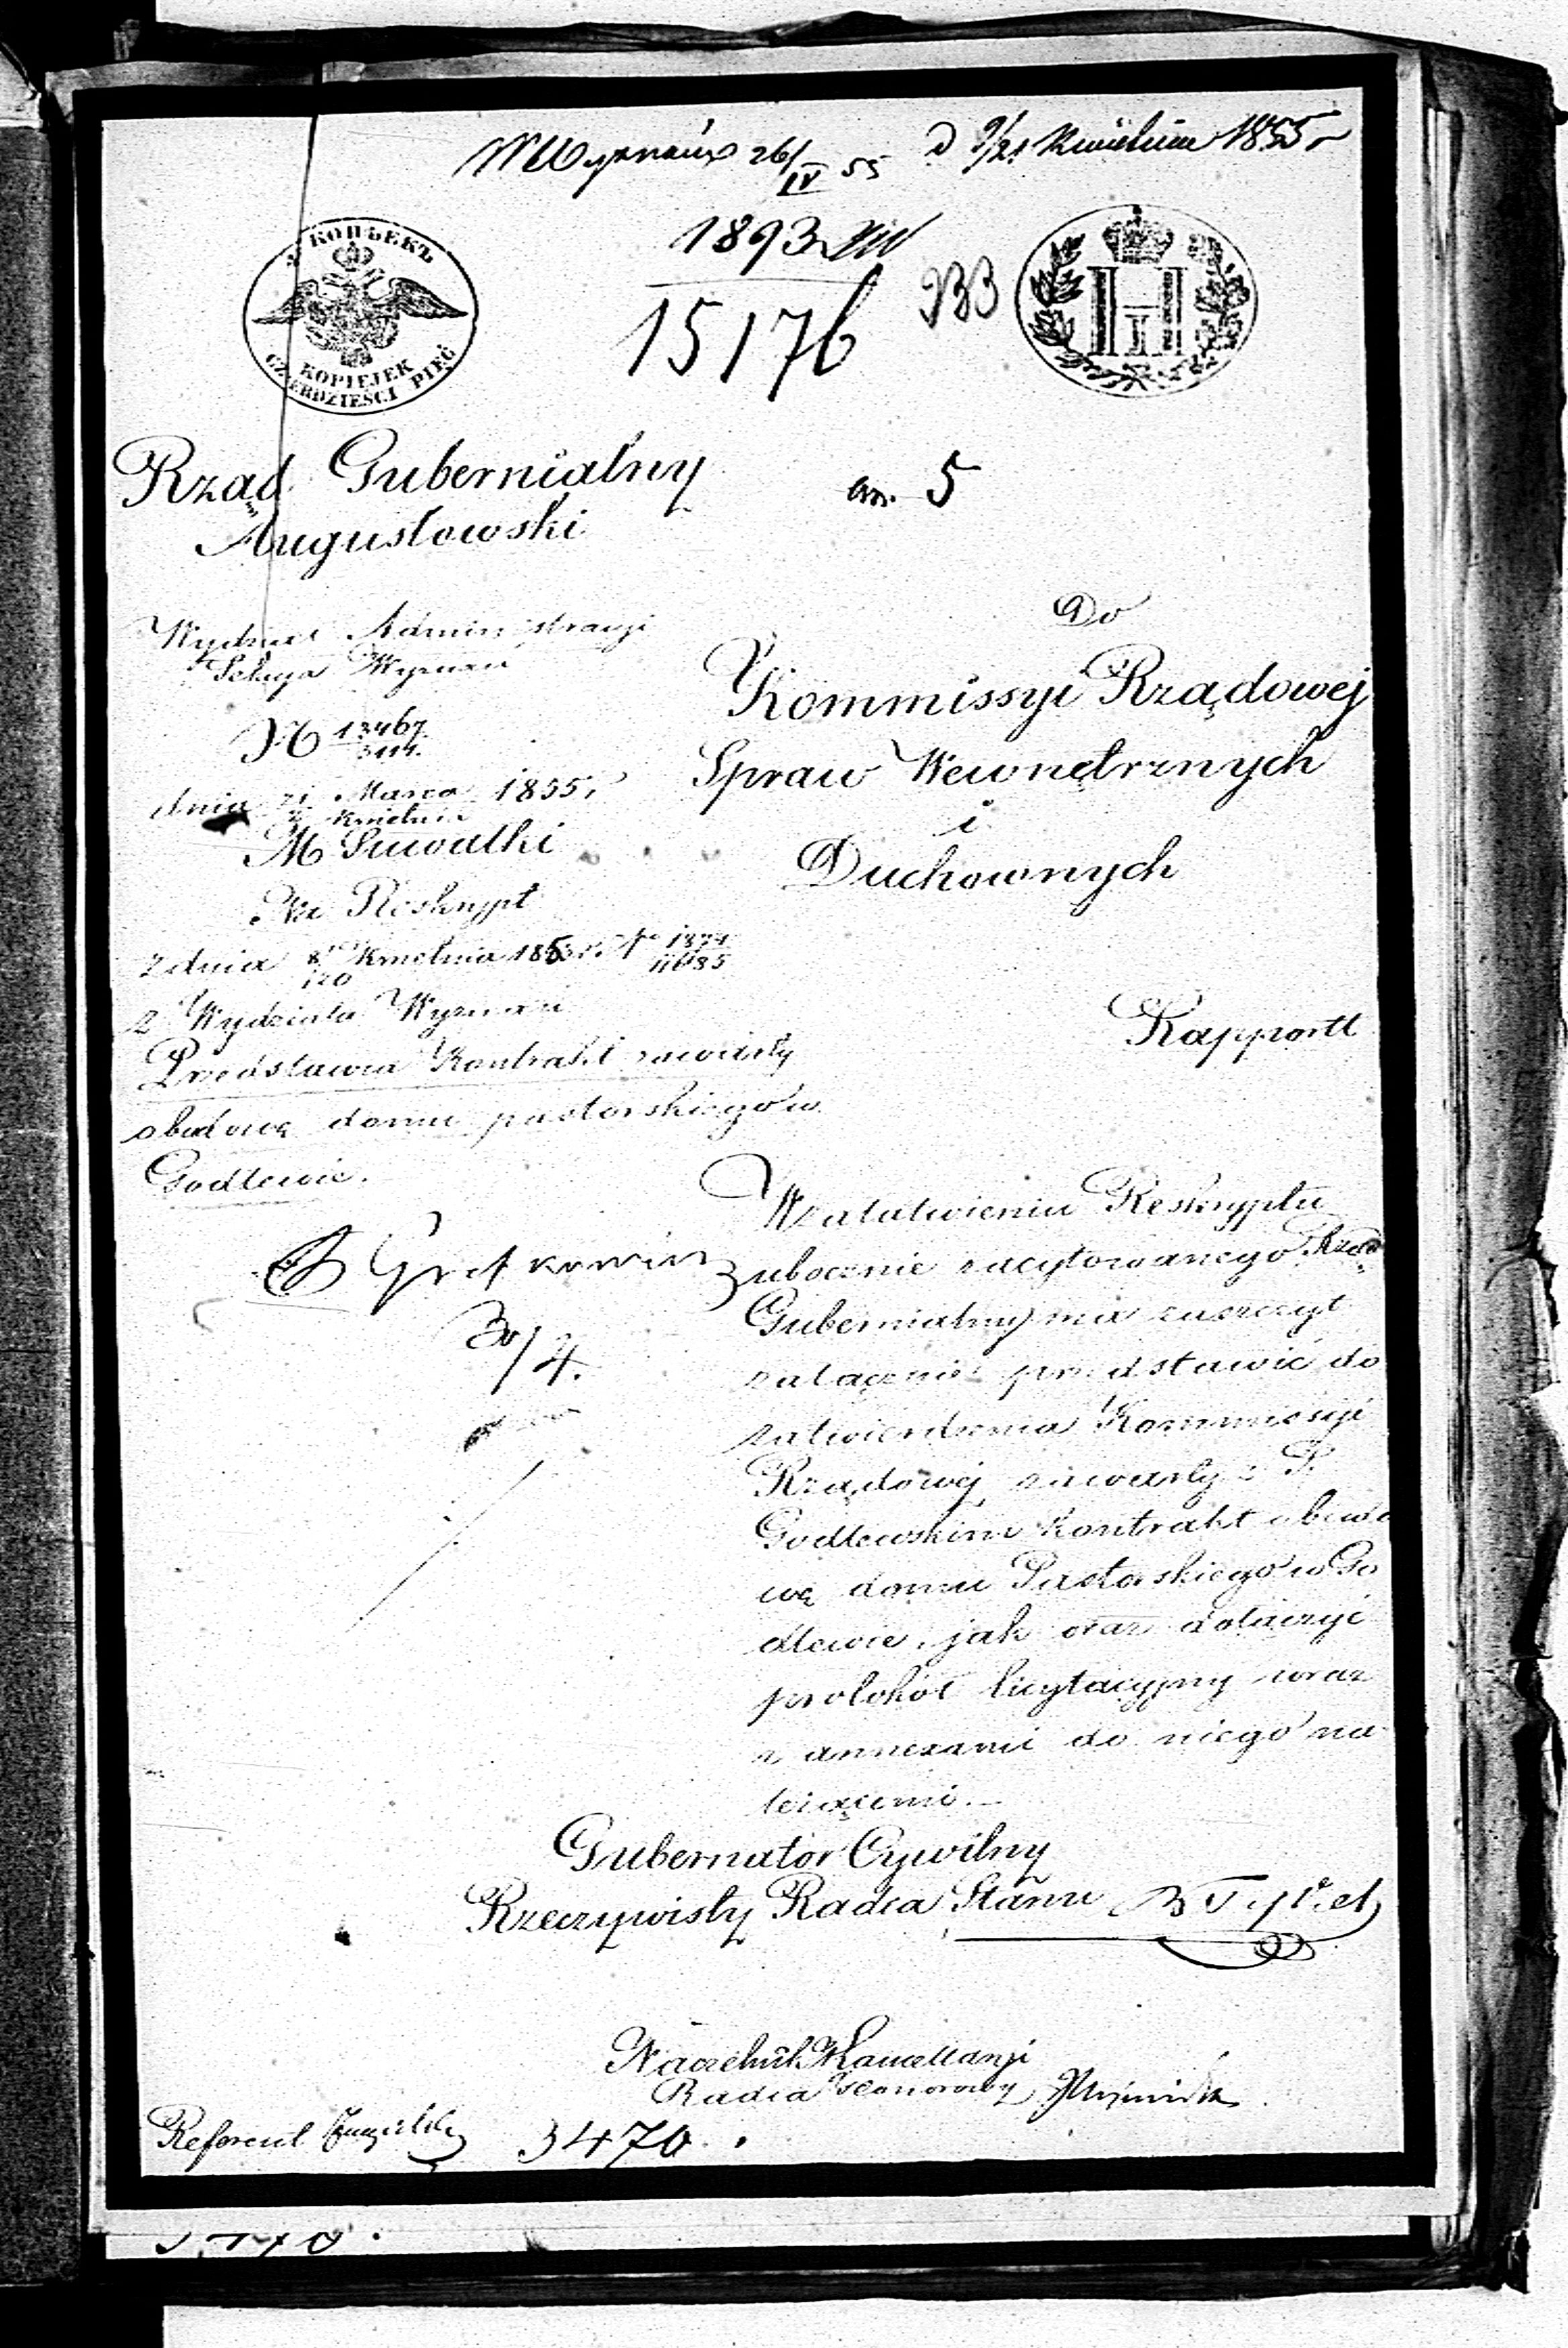 26/IV 55 d 9/21 Kwietnia 1855 r
1893
15176
КОПѢЕКЪ
KOPIEJEK
CZTERDZIEŚCI PIĘĆ
H I
Rząd Gubernialny
Augustowski
an. 5
Wydział Administracyi
Sekcya Wyznań
N 13467
dnia Marca 1855 r
Kwietnia
M Suwałki
Na Reskrypt
z dnia 8/20 Kwietnia 1853 r. No
z Wydziału Wyznań
Przedstawia Kontrakt zawarty
o budowę domu pastorskiego w
Godlewie.
30/4.
Do
Kommissyi Rządowej
Spraw Wewnętrznych
i
Duchownych
Rapportt
W załatwieniu Reskryptu
ubocznie zacytowanego Rząd
Gubernialny ma zaszczyt
załącznie przedstawić do
zatwierdzenia Kommissyi
Rządowej zawarty z P.
Godlewskim kontrakt o budo
wę domu Pastorskiego w Go
dlewie, jak oraz dołączyć
protokół licytacyjny wraz
z annexami do niego na
leżącemi.
Gubernator Cywilny
Rzeczywisty Radca Stanu
Naczelnik Kancellaryi
Radca Honorowy
Referent
3470.